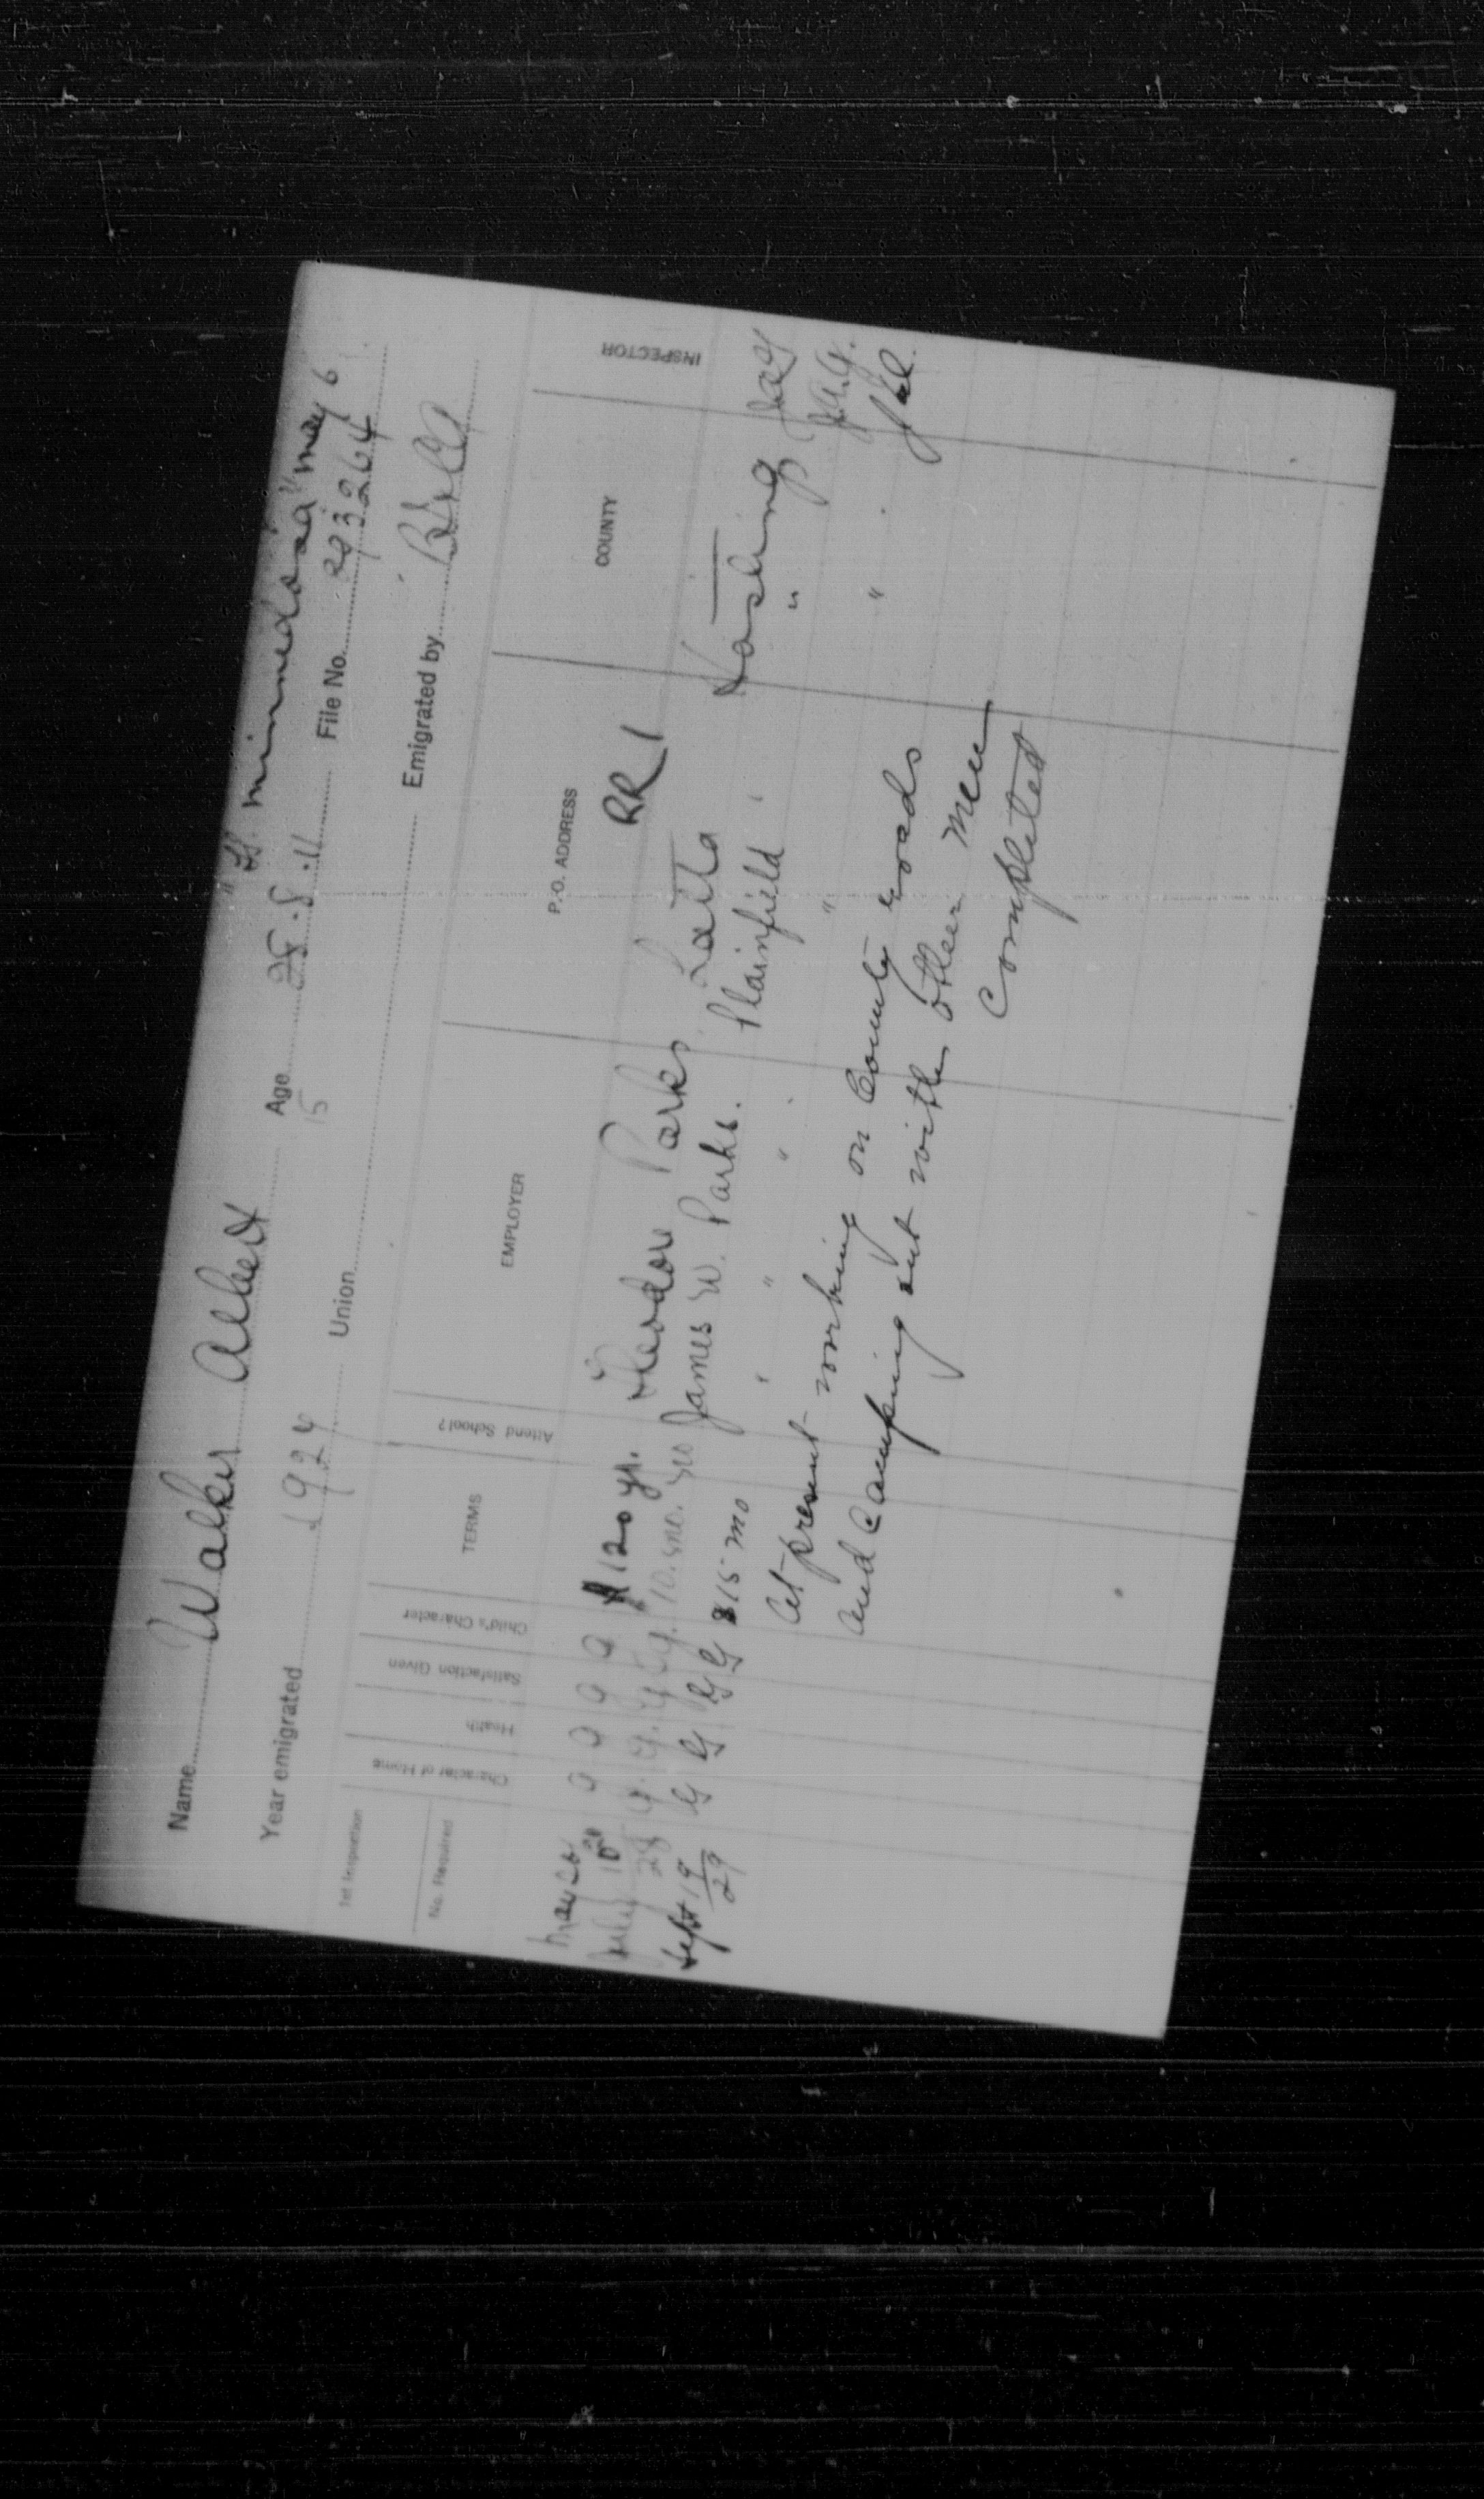 "S. Minnedosa" May 6
Name Walker Albert Age 28.8.11 File No. 293264
15
Year emigrated 1924 Union Emigrated by
1st Inspection
No. Required
Character of Home Health Satisfaction Given Child's Character TERMS Attend School? EMPLOYER P.O. ADDRESS COUNTY INSPECTOR
May 26 G G G G $120 yr. Theodore Parks RR 1 Latta Hastings
July 28 G. G. G. G. 10. mo. no James W. Parks. Plainfield " J.A.G.
Sept 19/29 G G G G $15 mo " " " "
At present working on County roads
and Camping out with other men
Completed